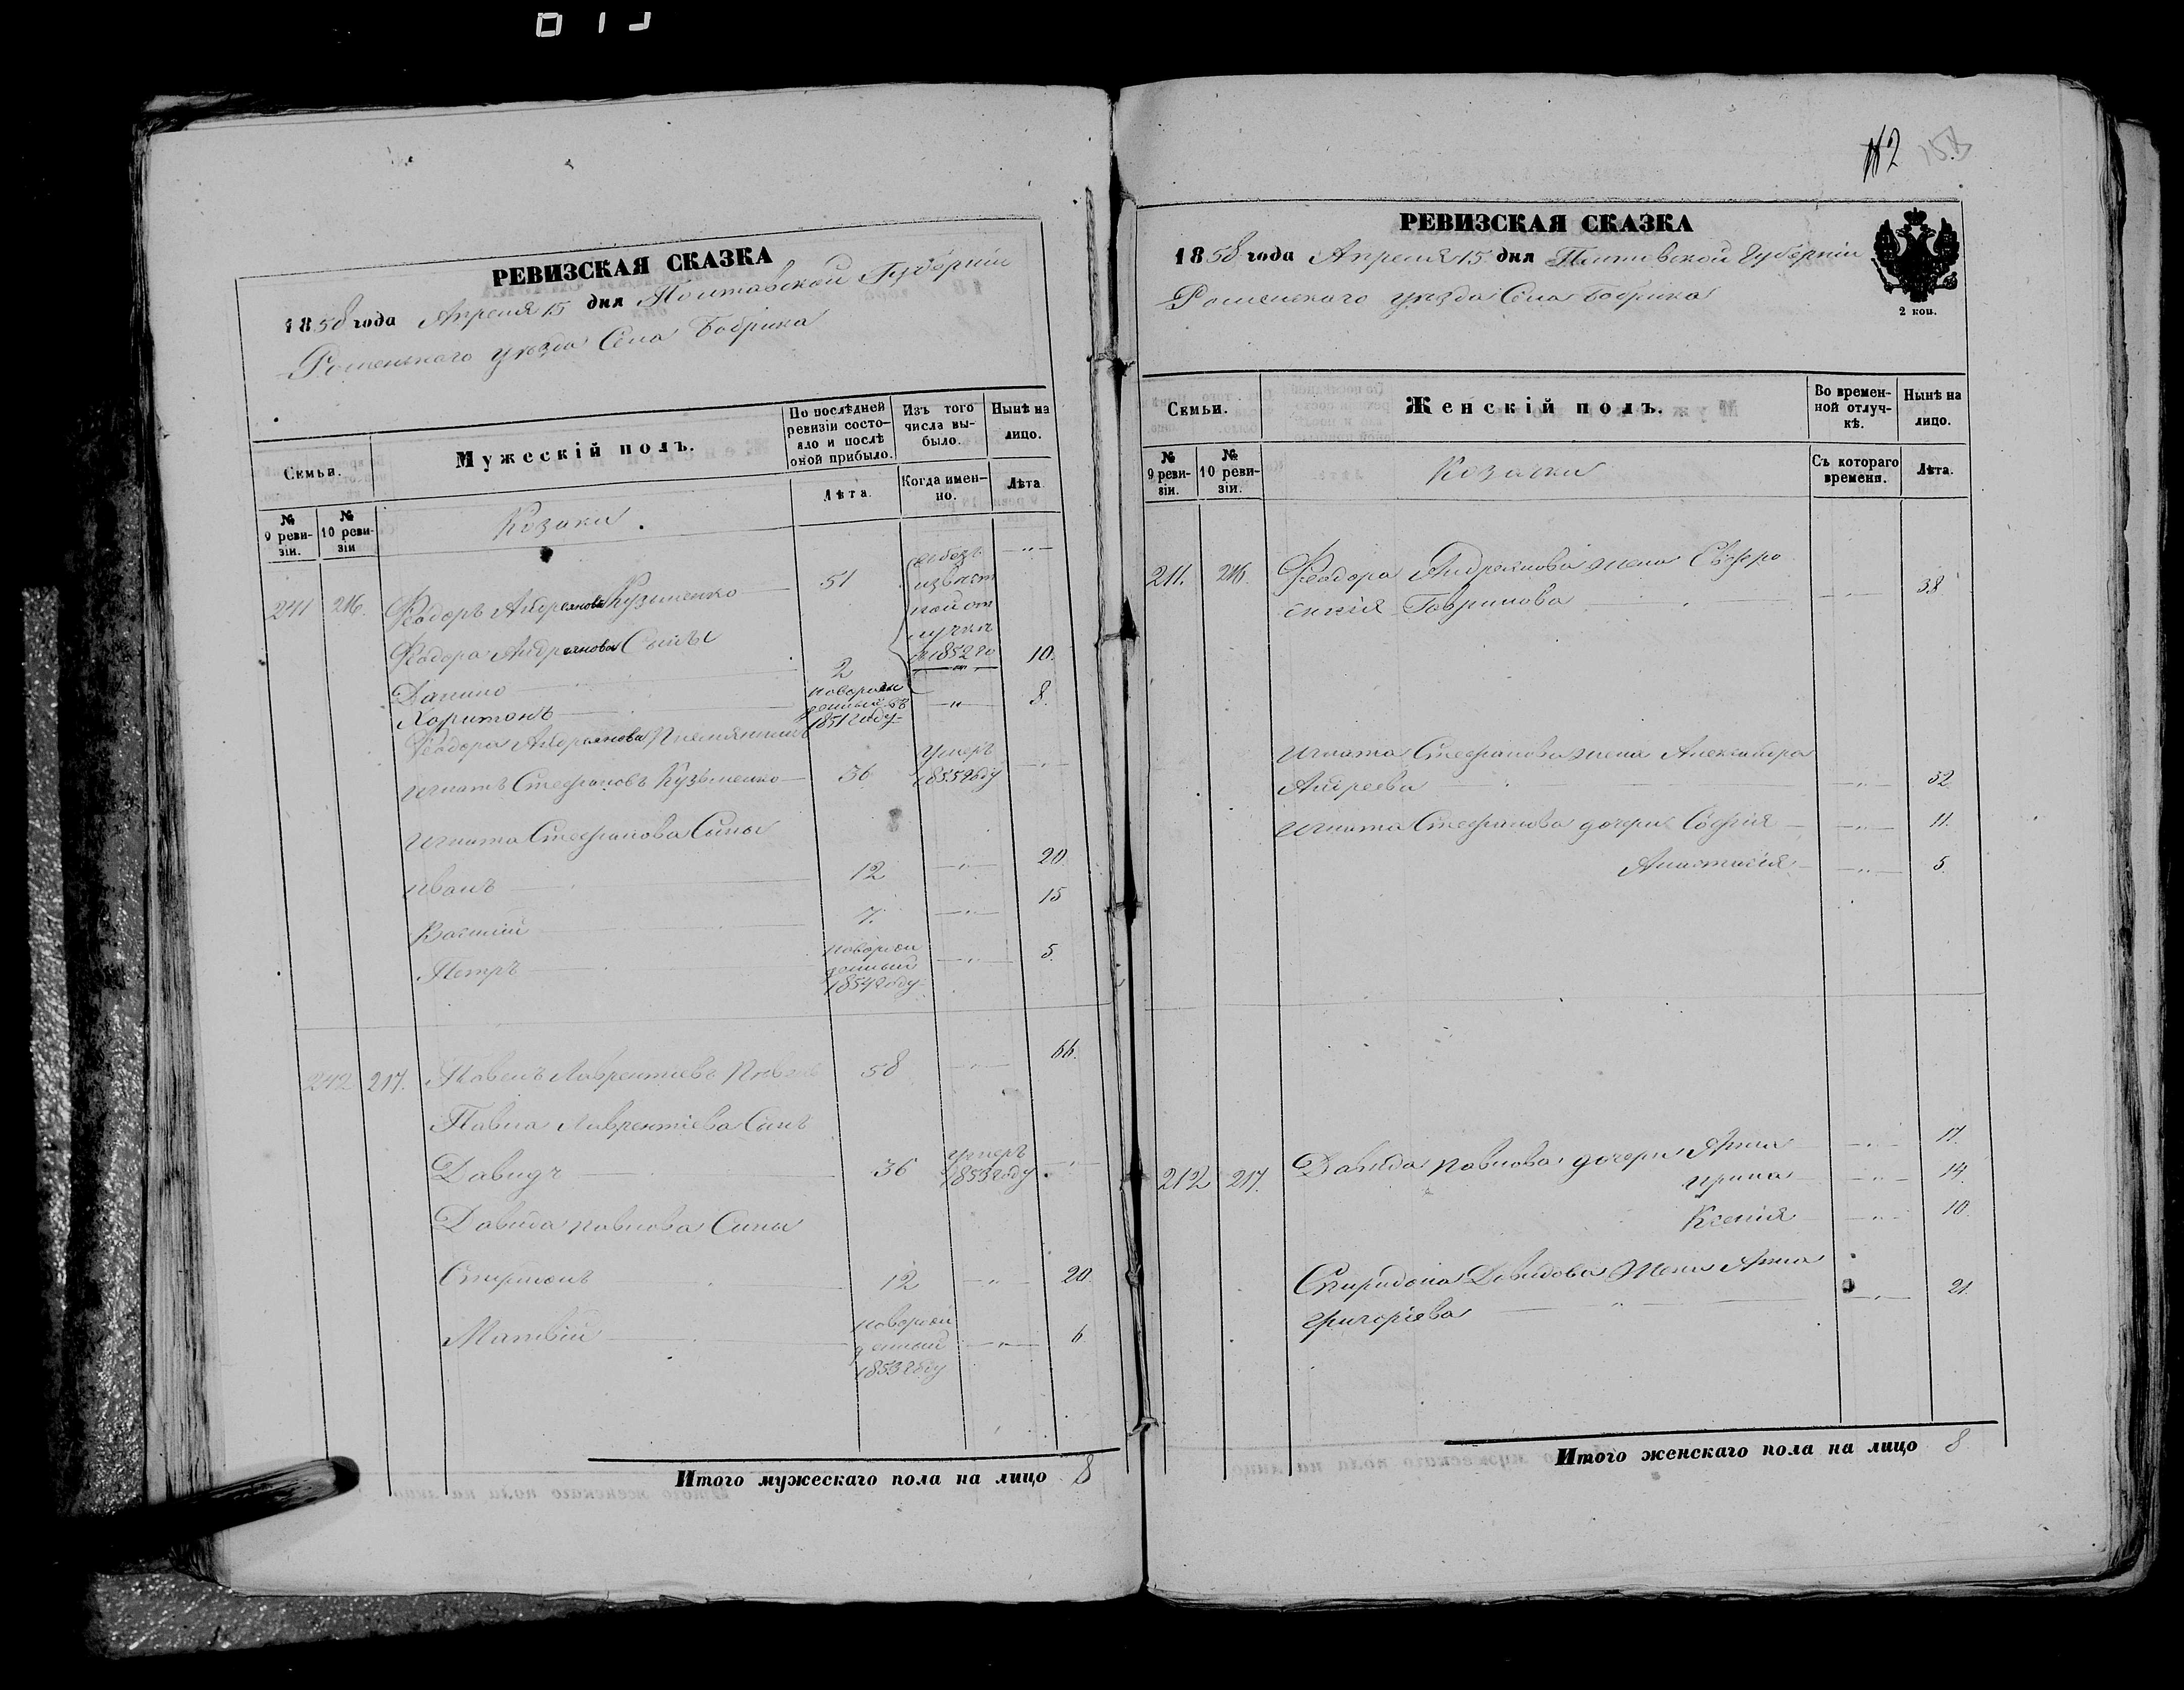 РЕВИЗСКАЯ СКАЗКА
1858 года Апреля 15 дня Полтавской Губерніи
Роменскаго уѣзда Села Бобрика
Сѣмьи.
Мужескій полъ.
По послѣдней ревизіи состояло и послѣ оной прибыло.
Изъ того числа выбыло.
Нынѣ на лицо.
№ 9 ревизіи.
№ 10 ревизіи
Козаки.
Лѣта.
Когда именно.
Лѣта
241 216. Феодоръ Андреяновъ Кузьменко 51 въ безъизвестной отлучки съ 1852 го —"—
Феодора Андреянова Сыны
Данило 2 —"— 10.
Харитонъ новорожденный въ 1851 году —"— 8.
Феодора Андреянова Племянникъ
Игнатъ Стефановъ Кузьменко 36 умеръ 1855 году —"—
Игната Стефанова Сыны
Иванъ 12 —"— 20
Василій 7. —"— 15
Петръ новорожденный 1854 году —"— 5.
242 217. Павелъ Лаврентіевъ 58 —"— 66.
Павла Лаврентіева Сынъ
Давидъ 36 умеръ 1853 году —"—
Давида Павлова Сыны
Спиридонъ 12 —"— 20.
Матвій новорожденный 1853 году —"— 6
Итого мужескаго пола на лицо 8
112 158
РЕВИЗСКАЯ СКАЗКА
1858 года Апреля 15 дня Полтавской Губерніи
Роменскаго уѣзда Села Бобрика
2 коп.
Сѣмьи.
Женскій полъ.
Во временной отлучкѣ.
Нынѣ на лицо.
№ 9 ревизіи.
№ 10 ревизіи.
Козачки
Съ котораго времени.
Лѣта.
211. 216. Феодора Андреянова жена Евфро
синія Гаврилова —"— 38
Игната Стефанова жена Александра
Андреева —"— 32.
Игната Стефанова дочери София —"— 11.
Анастасія —"— 5.
212 217. Давида Павлова дочери Анна —"— 17.
Ирина —"— 14.
Ксенія —"— 10.
Спиридона Давидова Жена Анна
Григоріева —"— 21.
Итого женскаго пола на лицо 8